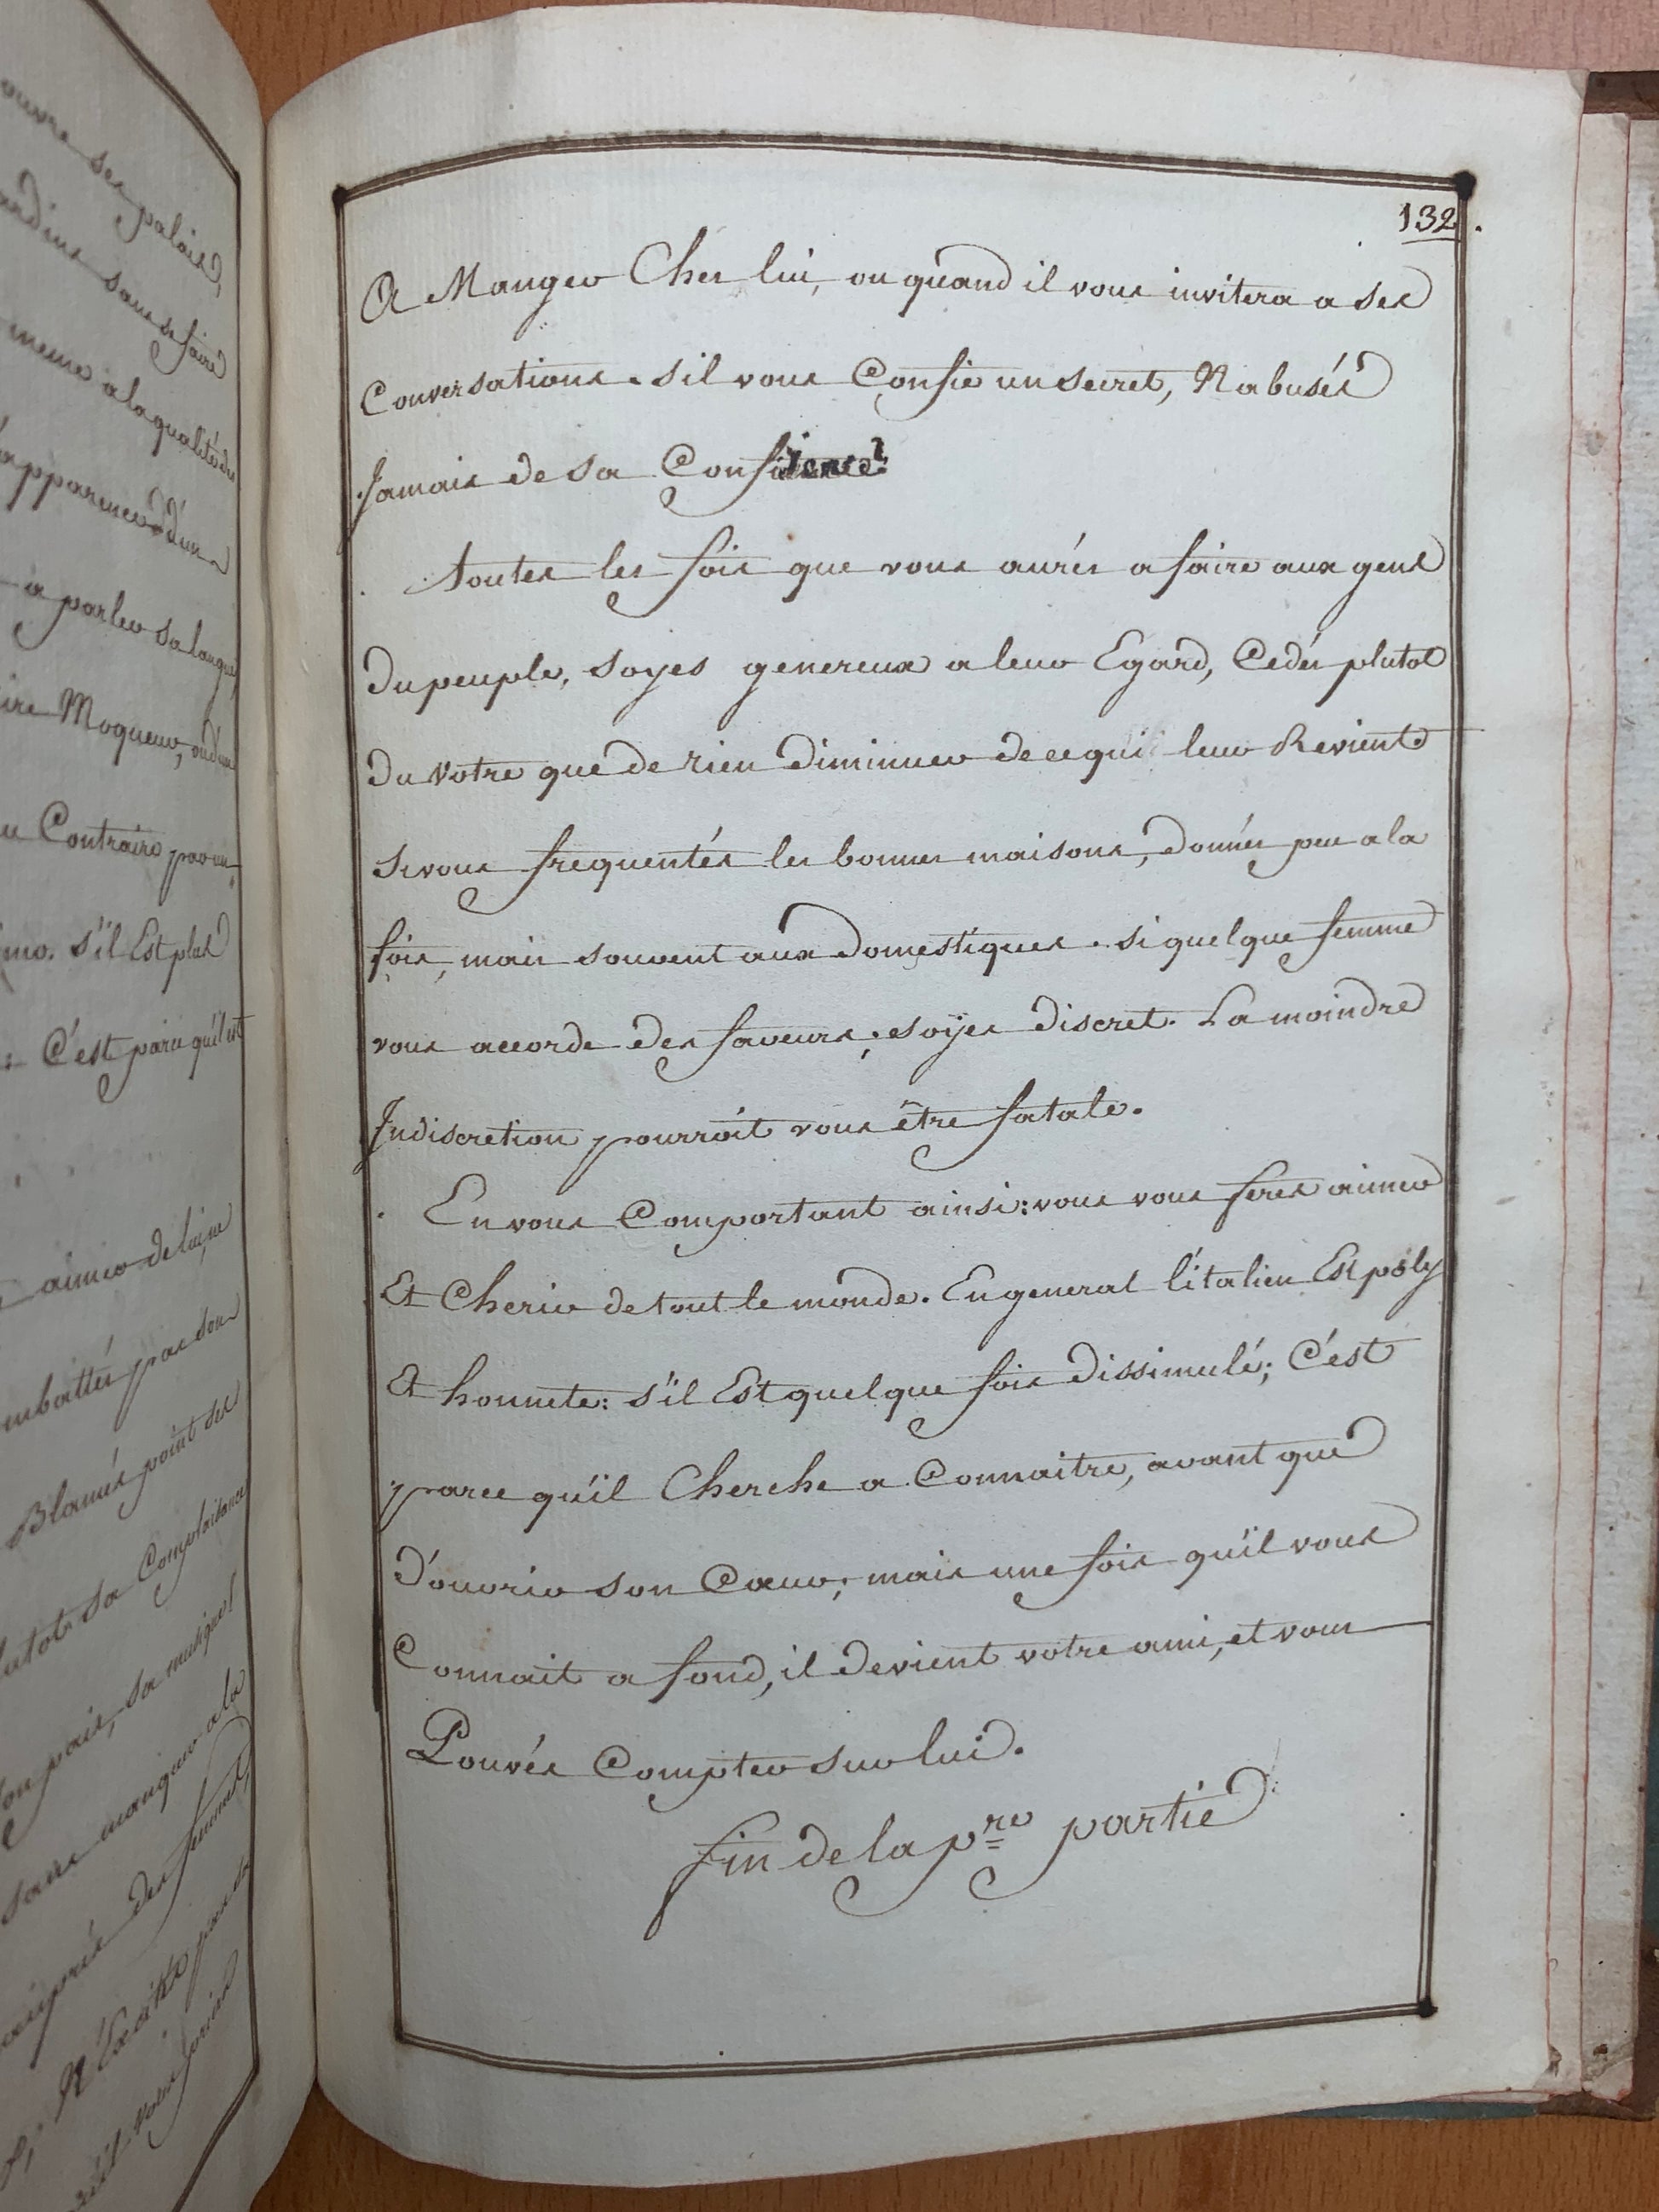 ouvre ses palais,
jardins sans se faire
meme a la qualité de
apparence d'un
a parler sa langue
ire Moqueur, ou d'un
u Contraire par un
mo. s'il Est plus
: C'est parce qu'il est
aimer de lui, ne
mbattés pas son
Blamés point ses
lutot sa Complaisance
son pais, sa musique!
sans manquer a la
auprés des femmes,
N'Excités pas sa
132.
A Manger Ches lui, ou quand il vous invitera a ses
Conversations. s'il vous Confie un secret, N'abusés
Jamais de sa Confidence.
toutes les fois que vous aurés a faire aux gens
du peuple, soyes genereux a leur Egard, Cedés plutot
du votre que de rien diminuer de ce qui leur Revient.
si vous frequentés les bonnes maisons, donnés peu a la
fois, mais souvent aux domestiques. si quelque femme
vous accorde des faveurs; soÿes discret. La moindre
Indiscretion pourroit vous être fatale.
En vous Comportant ainsi: vous vous ferés aimer
Et Cherir de tout le monde. En general l'italien Est poly
Et honnete: s'il Est quelque fois dissimulé; C'est
parce qu'il Cherche a Connaitre, avant que
d'ouvrir son Cœur; mais une fois qu'il vous
Connait a fond, il devient votre ami, et vous
Pouvés Compter sur lui.
fin de la pre partie